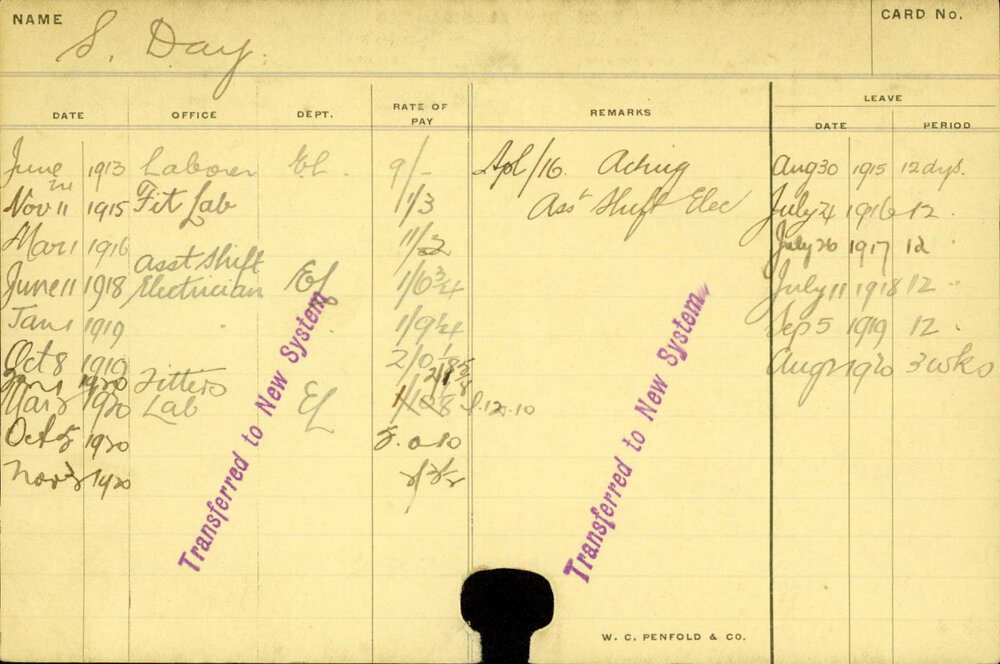 NAME
S. Day.
CARD No.
DATE OFFICE DEPT. RATE OF PAY REMARKS LEAVE
DATE PERIOD
June 1913 Laborer El. 9/- Apl/16. Acting Aug 30 1915 12 dys.
Nov 11 1915 Fit Lab 1/3 Asst Shift Elec July 24 1916 12.
Mar 1 1916 July 26 1917 12
Asst Shift
June 11 1918 Electrician El 1/6¾ July 11 1918 12 "
Jan 1 1919 1/9¼ Sep 5 1919 12.
Oct 8 1919 2/0 Aug 1920 3 wks
1920 Fitters
Mar 1920 Lab El 5.12.10
Oct 5 1920 5.0.10
Nov 1920
Transferred to New System
Transferred to New System
W. C. PENFOLD & CO.